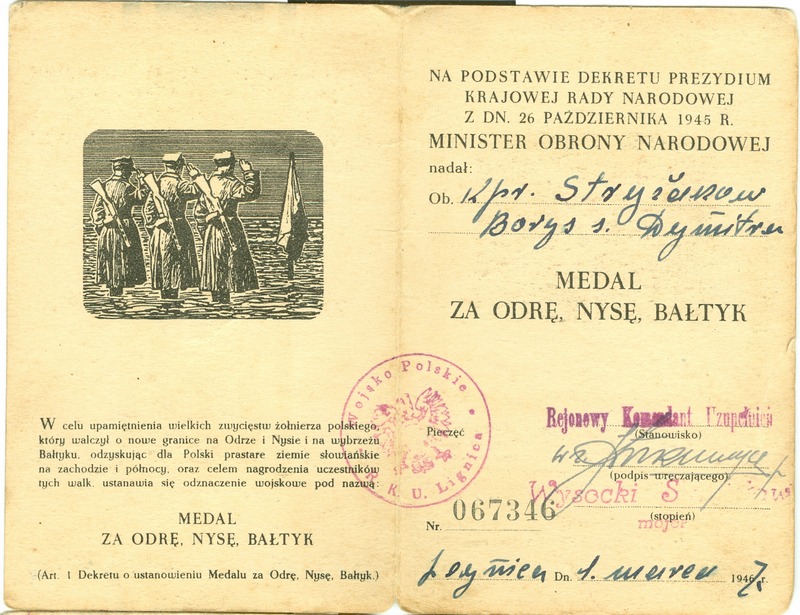 W celu upamiętnienia wielkich zwycięstw żołnierza polskiego,
który walczył o nowe granice na Odrze i Nysie i na wybrzeżu
Bałtyku, odzyskując dla Polski prastare ziemie słowiańskie
na zachodzie i północy, oraz celem nagrodzenia uczestników
tych walk, ustanawia się odznaczenie wojskowe pod nazwą:
MEDAL
ZA ODRĘ, NYSĘ, BAŁTYK
(Art. 1 Dekretu o ustanowieniu Medalu za Odrę, Nysę, Bałtyk.)
NA PODSTAWIE DEKRETU PREZYDIUM
KRAJOWEJ RADY NARODOWEJ
Z DN. 26 PAŹDZIERNIKA 1945 R.
MINISTER OBRONY NARODOWEJ
nadał:
Ob. Kpr. Stryżakow
Borys s. Dymitra
MEDAL
ZA ODRĘ, NYSĘ, BAŁTYK
Wojsko Polskie
R. K. U. Lignica
Pieczęć
Rejonowy Komendant Uzupełnień
(Stanowisko)
wz.
(podpis wręczającego)
Wysocki S
major
(stopień)
Nr. 067346
Legnica Dn. 1. marca 1947 r.